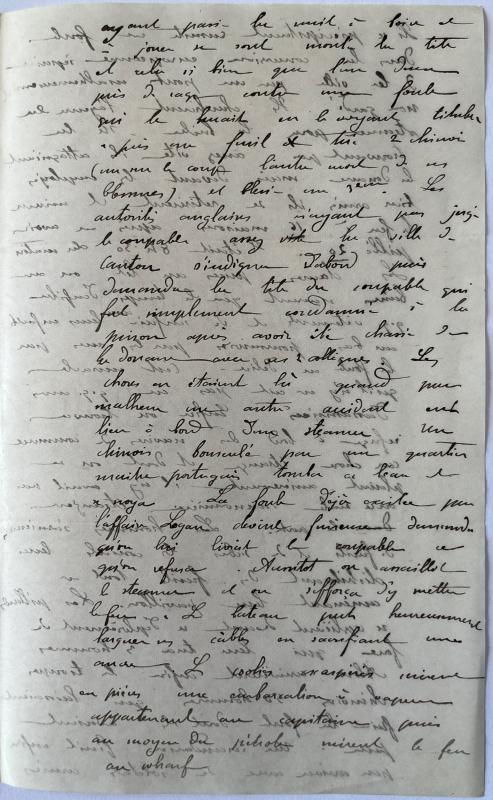 ayant passé la nuit à boire et
à jouer se sont monté la tête
et cela si bien que l'un d'eux
pris de rage contre une foule
qui le huait en le voyant tituber
pris un fusil et tue 2 chinois
(un sur le coup l'autre mort de ses
blessures) et blessa un 3eme. Les
autorités anglaises n'ayant pas jugé
le coupable assez vite la ville de
Canton s'indigna d'abord puis
demanda la tête du coupable qui
fut simplement condamné à la
prison après avoir été chassé de
la douane avec ses 2 collègues. Les
choses en étaient là quand par
malheur un autre accident eut
lieu à bord d'un steamer. Un
chinois bousculé par un quartier
maitre portugais tomba à l'eau et
se noya. La foule déjà excitée par
l'affaire Logan devint furieuse demanda
qu'on lui livrât le coupable ce
qu'on refusa. Aussitot on assaillit
le steamer et on s'efforça d'y mettre
le feu. Le bateau put heureusement
larguer ses câbles en sacrifiant une
ancre. Les coolies exaspérés mirent
en pièces une embarcation à vapeur
appartenant au capitaine puis
au moyen du pétrole mirent le feu
au wharf